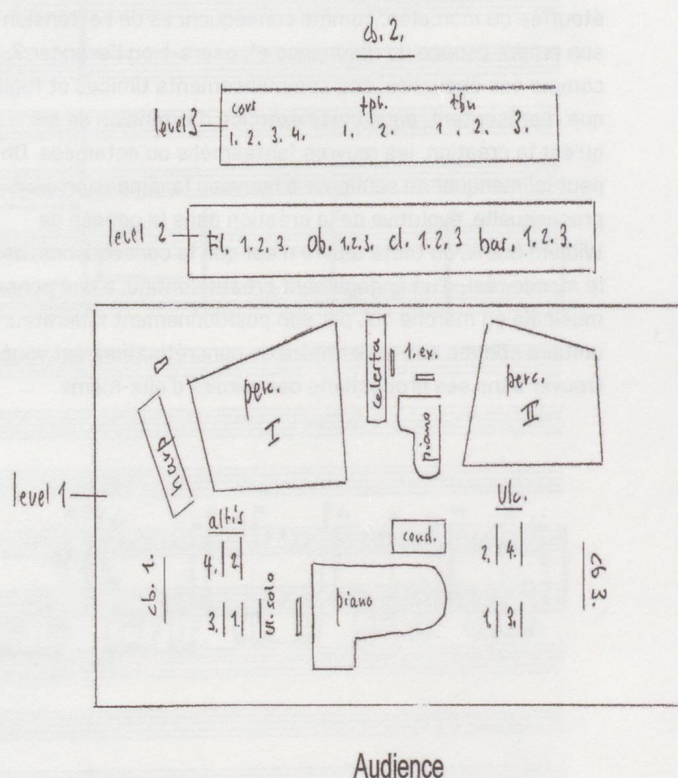 cb. 2.
level 3
cors tpt. tbn
1. 2. 3. 4. 1. 2. 1. 2. 3.
level 2
Fl. 1.2.3. Ob. 1.2.3. cl. 1.2.3 bas. 1.2.3.
level 1
harp
perc.
I
celesta
1. ex.
piano
perc.
II
altis
4. 2.
3. 1.
vl. solo
cb. 1.
cond.
piano
Vlc.
2. 4.
1. 3.
cb 3.
Audience